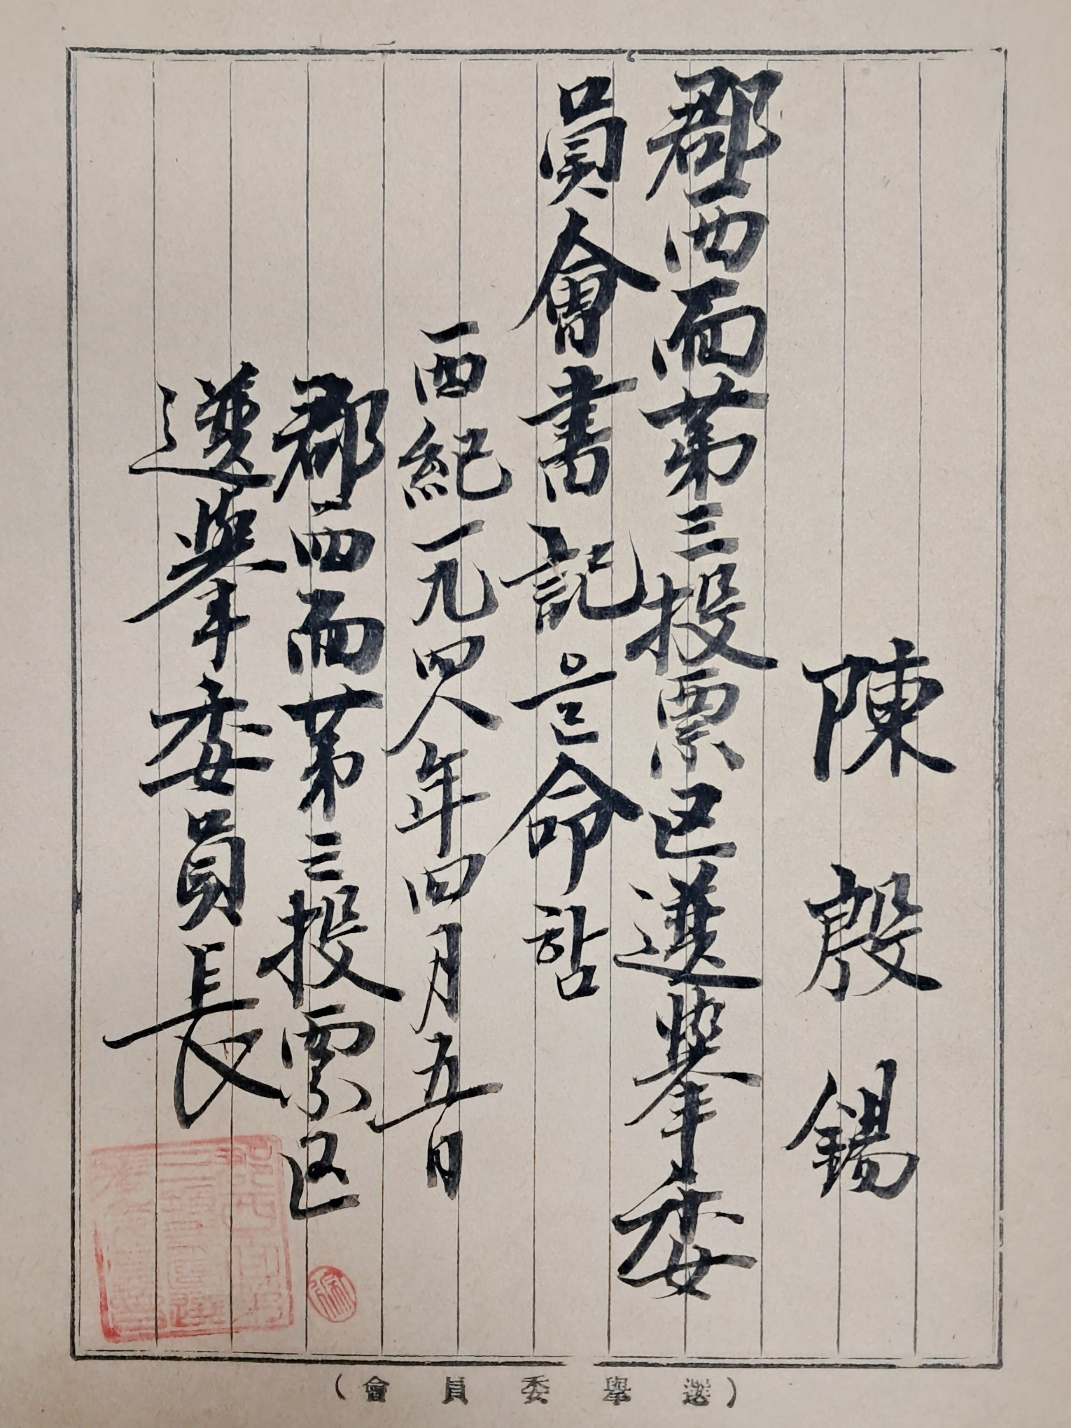 陳殷錫
郡西面第三投票区選擧委
員會書記을命함
西紀一九四八年四月五日
郡西面第三投票区
選擧委員長
(選擧委員會)